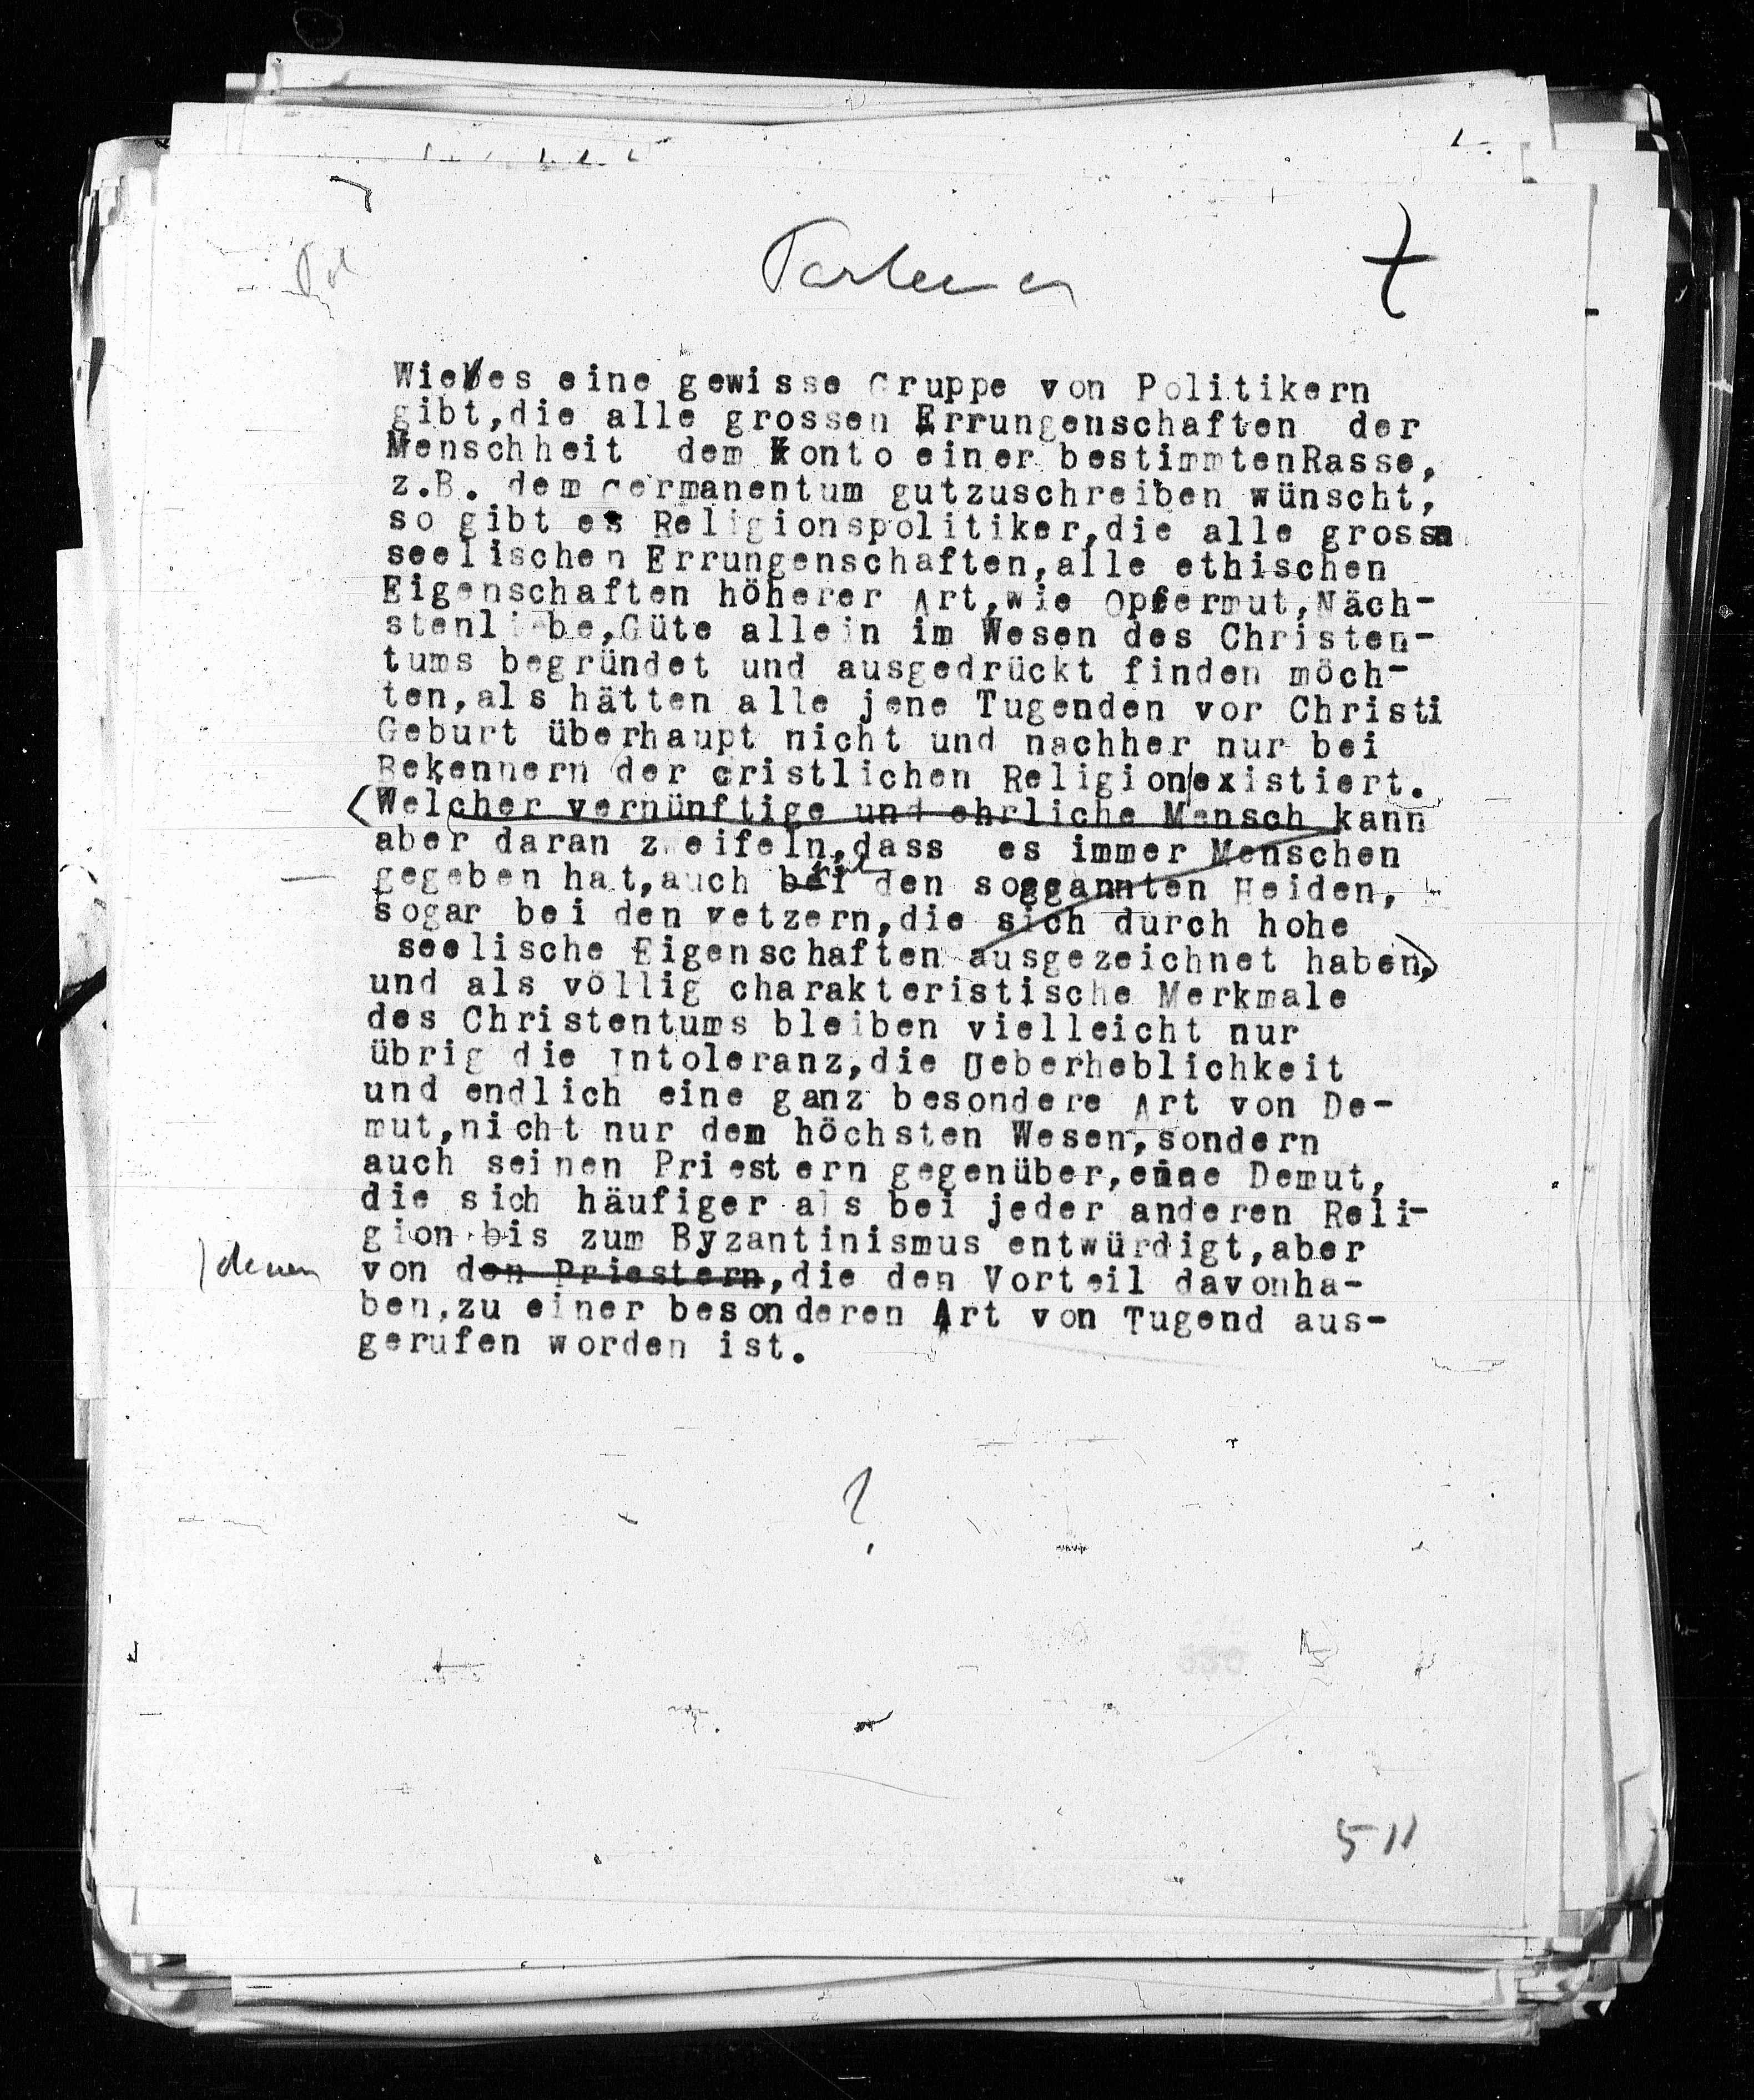 Pol
Wie es eine gewisse Gruppe von Politikern
gibt,die alle grossen Errungenschaften der
Menschheit dem Konto einer bestimmtenRasse,
z.B. dem Germanentum gutzuschreiben wünscht,
so gibt es Religionspolitiker,die alle grossn
seelischen Errungenschaften,alle ethischen
Eigenschaften höherer Art,wie Opfermut,Näch-
stenliebe,Güte allein im Wesen des Christen-
tums begründet und ausgedrückt finden möch-
ten,als hätten alle jene Tugenden vor Christi
Geburt überhaupt nicht und nachher nur bei
Bekennern der cristlichen Religion existiert.
Welcher vernünftige und ehrliche Mensch kann
aber daran zweifeln,dass es immer Menschen
gegeben hat,auch bei den soggannten Heiden,
sogar bei den Ketzern,die sich durch hohe
seelische Eigenschaften ausgezeichnet haben,
und als völlig charakteristische Merkmale
des Christentums bleiben vielleicht nur
übrig die Intoleranz,die Ueberheblichkeit
und endlich eine ganz besondere Art von De-
mut,nicht nur dem höchsten Wesen,sondern
auch seinen Priestern gegenüber,eine Demut,
die sich häufiger als bei jeder anderen Reli-
gion bis zum Byzantinismus entwürdigt,aber
denen
von den Priestern,die den Vorteil davonha-
ben,zu einer besonderen Art von Tugend aus-
gerufen worden ist.
?
511